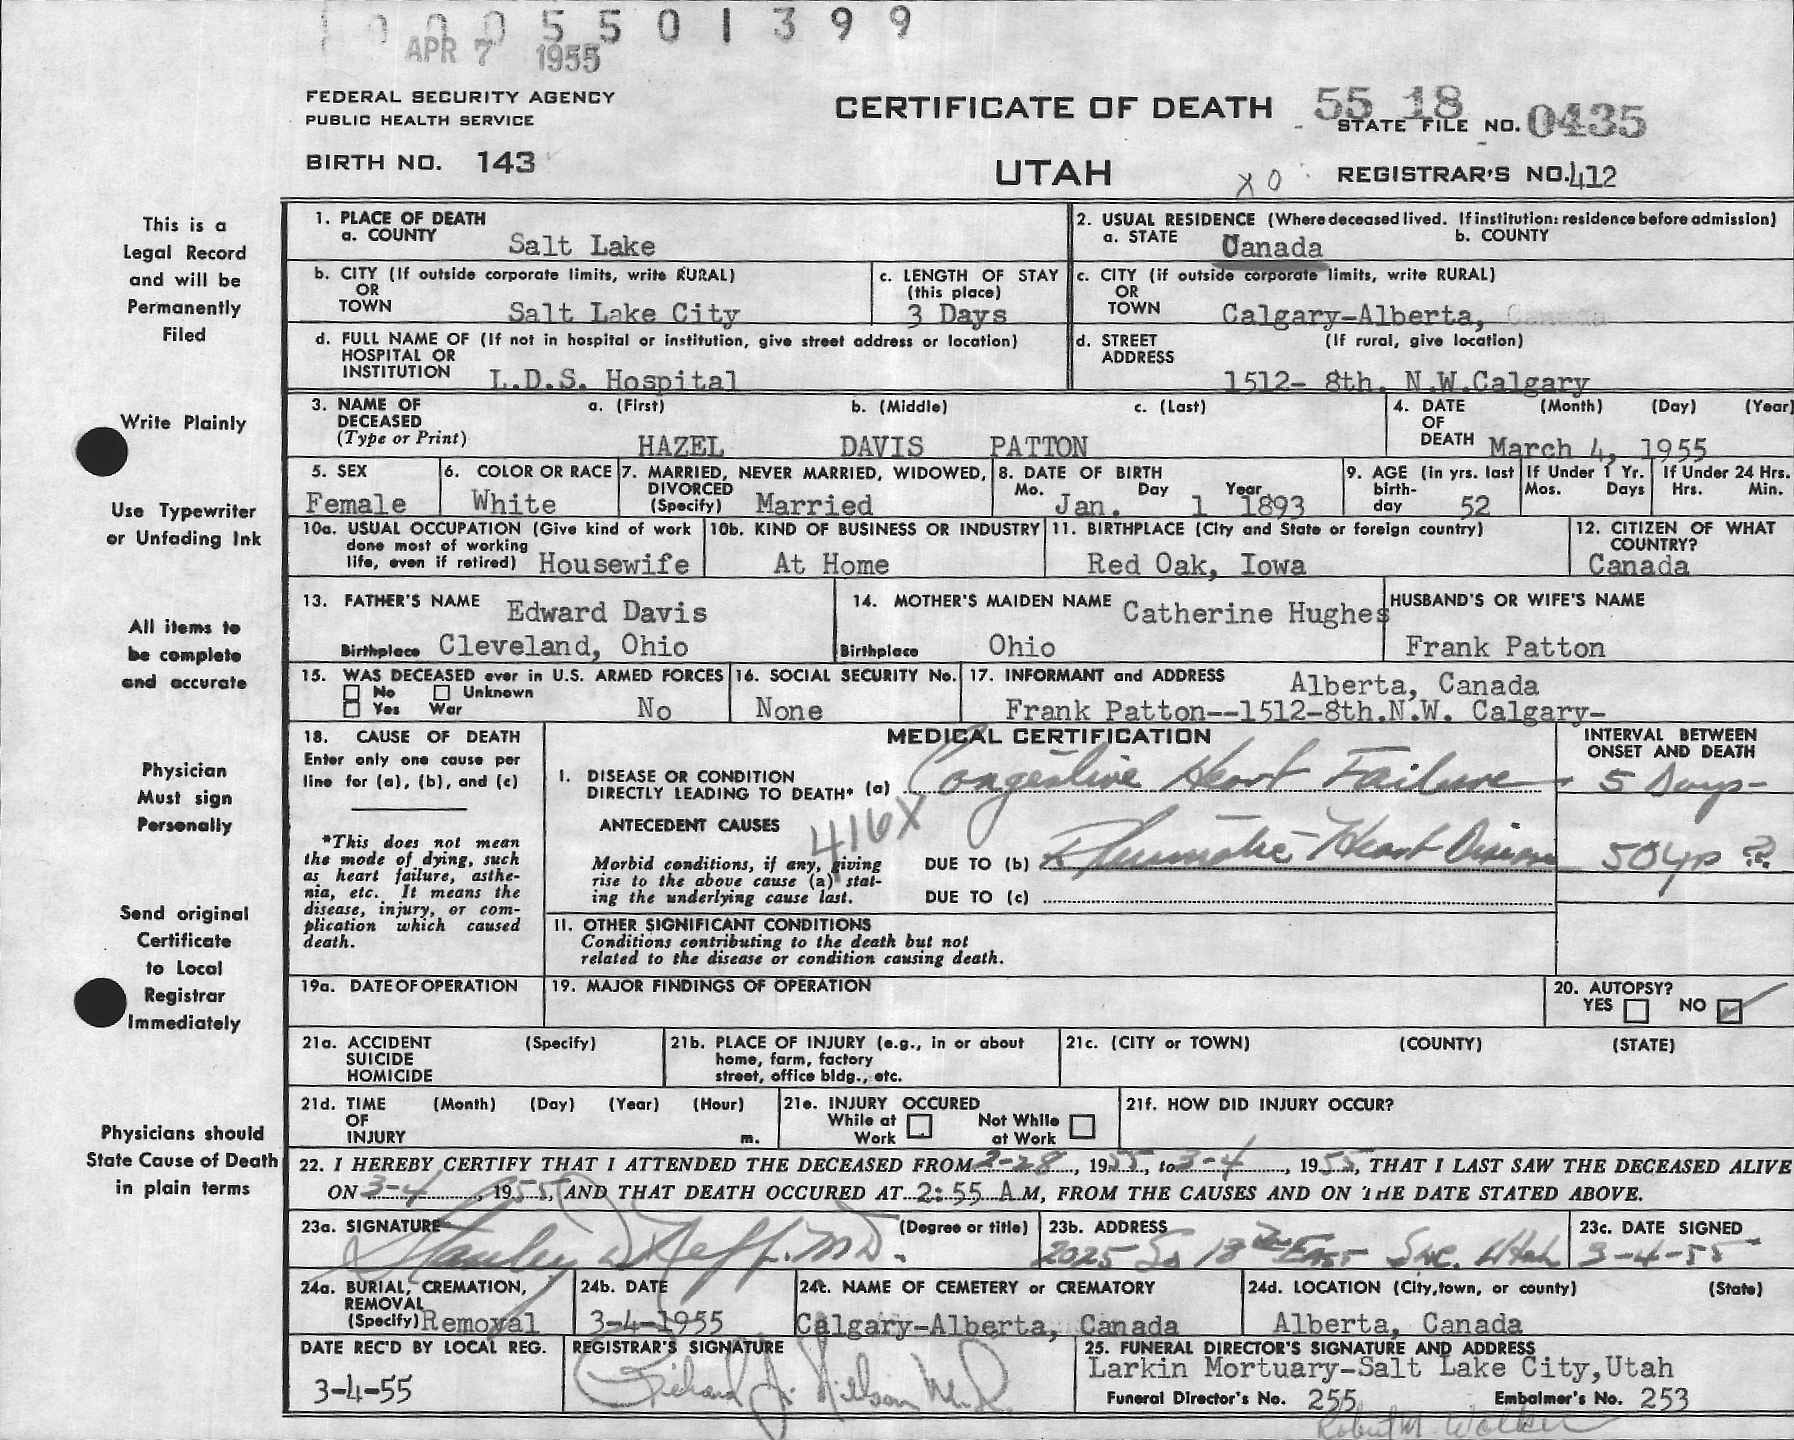 1000 5501399
APR 7 1955
FEDERAL SECURITY AGENCY
PUBLIC HEALTH SERVICE
BIRTH NO. 143
CERTIFICATE OF DEATH
UTAH
55 18
STATE FILE NO. 0435
X0
REGISTRAR'S NO. 412
This is a
Legal Record
and will be
Permanently
Filed
Write Plainly
Use Typewriter
or Unfading Ink
All items to
be complete
and accurate
Physician
Must sign
Personally
Send original
Certificate
to Local
Registrar
Immediately
Physicians should
State Cause of Death
in plain terms
1. PLACE OF DEATH
a. COUNTY Salt Lake
2. USUAL RESIDENCE (Where deceased lived. If institution: residence before admission)
a. STATE Canada b. COUNTY
b. CITY (If outside corporate limits, write RURAL)
OR
TOWN Salt Lake City
c. LENGTH OF STAY
(this place)
3 Days
c. CITY (if outside corporate limits, write RURAL)
OR
TOWN Calgary-Alberta, Canada
d. FULL NAME OF (If not in hospital or institution, give street address or location)
HOSPITAL OR
INSTITUTION L.D.S. Hospital
d. STREET (If rural, give location)
ADDRESS
1512- 8th. N.W.Calgary
3. NAME OF a. (First) b. (Middle) c. (Last)
DECEASED
(Type or Print) HAZEL DAVIS PATTON
4. DATE (Month) (Day) (Year)
OF
DEATH March 4, 1955
5. SEX
Female
6. COLOR OR RACE
White
7. MARRIED, NEVER MARRIED, WIDOWED,
DIVORCED
(Specify) Married
8. DATE OF BIRTH
Mo. Day Year
Jan. 1 1893
9. AGE (in yrs. last
birth-
day 52
If Under 1 Yr.
Mos. Days
If Under 24 Hrs.
Hrs. Min.
10a. USUAL OCCUPATION (Give kind of work
done most of working
life, even if retired) Housewife
10b. KIND OF BUSINESS OR INDUSTRY
At Home
11. BIRTHPLACE (City and State or foreign country)
Red Oak, Iowa
12. CITIZEN OF WHAT
COUNTRY?
Canada
13. FATHER'S NAME Edward Davis
Birthplace Cleveland, Ohio
14. MOTHER'S MAIDEN NAME Catherine Hughes
Birthplace Ohio
HUSBAND'S OR WIFE'S NAME
Frank Patton
15. WAS DECEASED ever in U.S. ARMED FORCES
No Unknown
Yes War No
16. SOCIAL SECURITY No.
None
17. INFORMANT and ADDRESS Alberta, Canada
Frank Patton--1512-8th.N.W. Calgary-
18. CAUSE OF DEATH
Enter only one cause per
line for (a), (b), and (c)
*This does not mean
the mode of dying, such
as heart failure, asthe-
nia, etc. It means the
disease, injury, or com-
plication which caused
death.
MEDICAL CERTIFICATION
INTERVAL BETWEEN
ONSET AND DEATH
I. DISEASE OR CONDITION
DIRECTLY LEADING TO DEATH* (a) Congestive Heart Failure 5 Days-
ANTECEDENT CAUSES 416X
Morbid conditions, if any, giving
rise to the above cause (a) stat-
ing the underlying cause last.
DUE TO (b) Rheumatic Heart Disease 50 yrs ??
DUE TO (c)
II. OTHER SIGNIFICANT CONDITIONS
Conditions contributing to the death but not
related to the disease or condition causing death.
19a. DATE OF OPERATION
19. MAJOR FINDINGS OF OPERATION
20. AUTOPSY?
YES NO
21a. ACCIDENT (Specify)
SUICIDE
HOMICIDE
21b. PLACE OF INJURY (e.g., in or about
home, farm, factory
street, office bldg., etc.
21c. (CITY or TOWN) (COUNTY) (STATE)
21d. TIME (Month) (Day) (Year) (Hour)
OF
INJURY m.
21e. INJURY OCCURED
While at Not While
Work at Work
21f. HOW DID INJURY OCCUR?
22. I HEREBY CERTIFY THAT I ATTENDED THE DECEASED FROM 2-28, 1955, to 3-4, 1955, THAT I LAST SAW THE DECEASED ALIVE
ON 3-4, 1955, AND THAT DEATH OCCURED AT 2:55 A.M, FROM THE CAUSES AND ON THE DATE STATED ABOVE.
23a. SIGNATURE (Degree or title)
Stanley D Neff. M D.
23b. ADDRESS
2025 So 13th East SLC. Utah
23c. DATE SIGNED
3-4-55
24a. BURIAL, CREMATION,
REMOVAL
(Specify) Removal
24b. DATE
3-4-1955
24c. NAME OF CEMETERY or CREMATORY
Calgary-Alberta, Canada
24d. LOCATION (City, town, or county) (State)
Alberta, Canada
DATE REC'D BY LOCAL REG.
3-4-55
REGISTRAR'S SIGNATURE
Richard J. Nilsson M.D.
25. FUNERAL DIRECTOR'S SIGNATURE AND ADDRESS
Larkin Mortuary-Salt Lake City,Utah
Funeral Director's No. 255 Embalmer's No. 253
Robert M. Walker